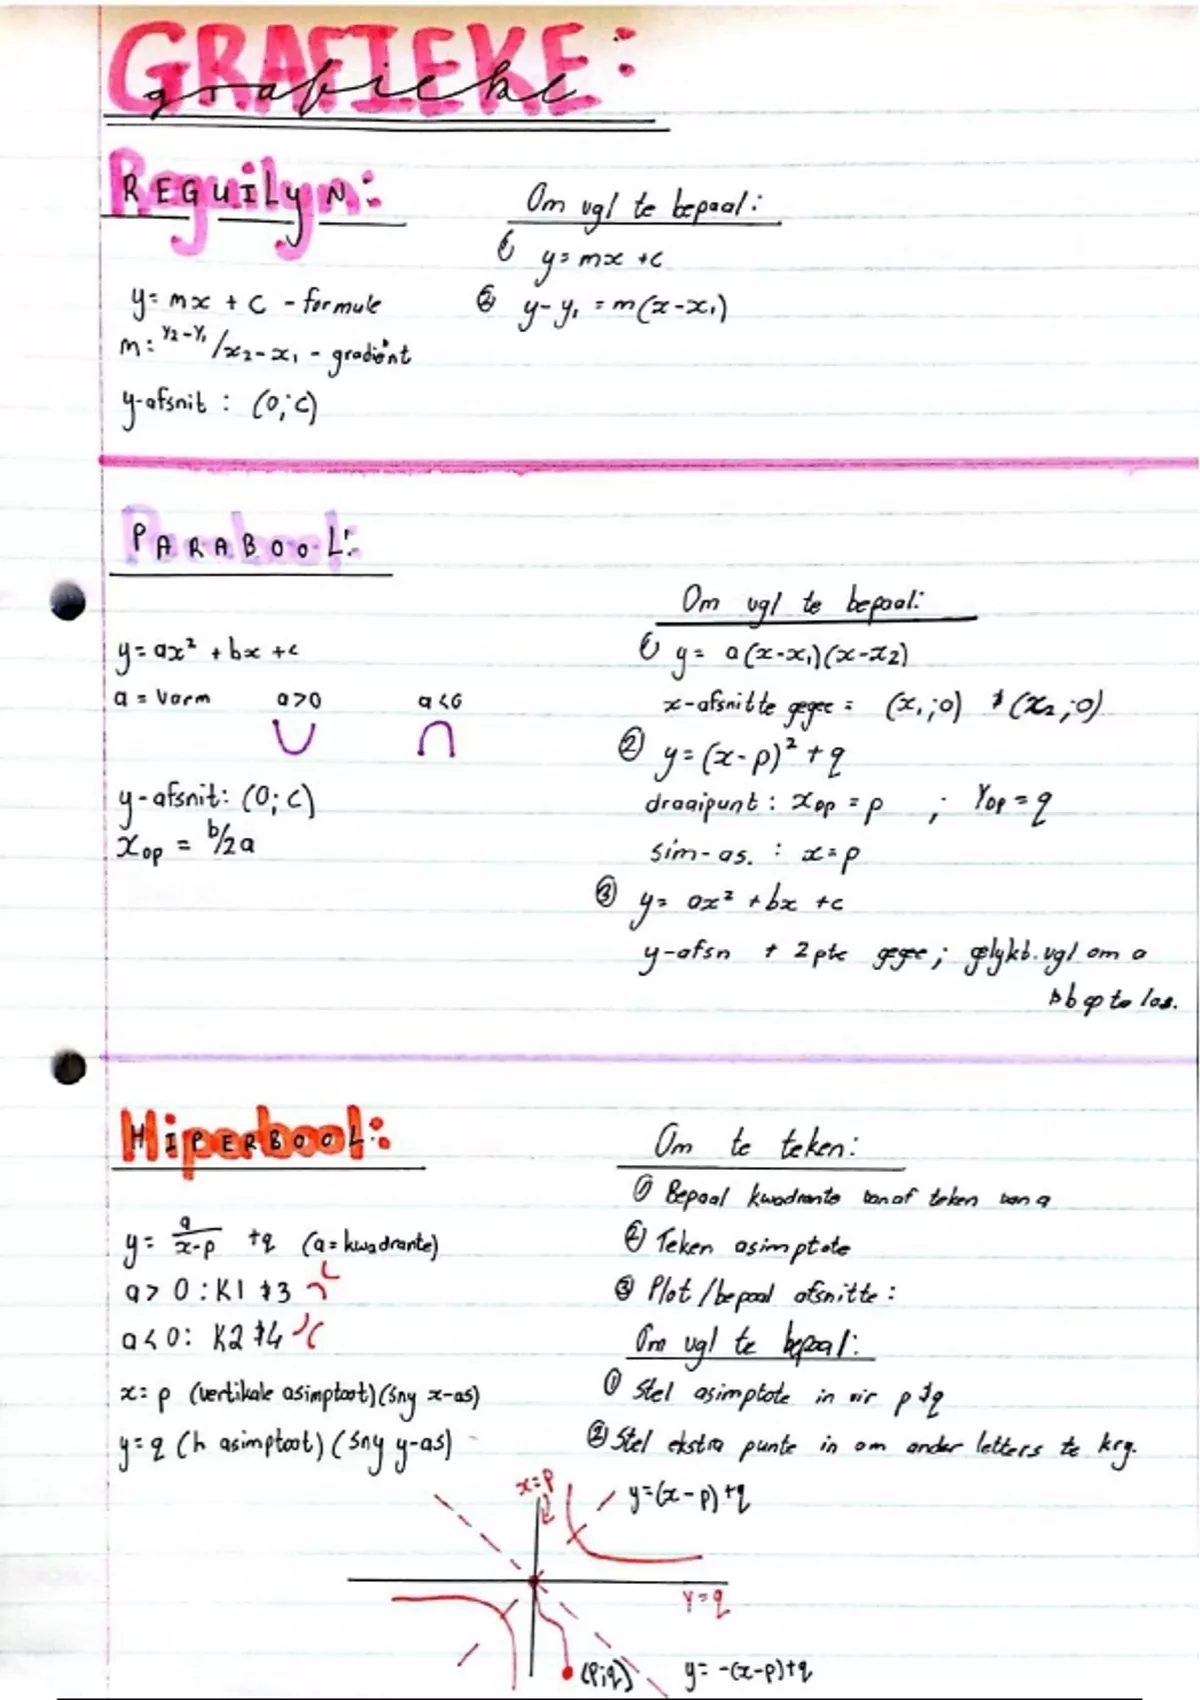 GRAFIEKE:
grafieke
REGUILYN:
Om vgl te bepaal:
① y = mx + c
y = mx + c - formule
② y - y₁ = m(x - x₁)
m = y₂-y₁/x₂-x₁ - gradiënt
y-afsnit : (0; c)
PARABOOL:
Om vgl te bepaal:
y = ax² + bx + c
① y = a(x-x₁)(x-x₂)
a = vorm a>0 a<0
x-afsnitte gegee = (x₁;0) & (x₂;0)
② y = (x-p)² + q
y-afsnit: (0; c)
draaipunt : xop = p ; Yop = q
xop = b/2a
sim-as. : x = p
③ y = ax² + bx + c
y-afsn + 2 pte gegee; gelykt. vgl om a
& b op te los.
HIPERBOOL:
Om te teken:
① Bepaal kwadrante vanaf teken van a
y = a/x-p + q (a = kwadrante)
② Teken asimptote
a > 0 : K1 & 3
③ Plot / bepaal afsnitte :
a < 0 : K2 & 4
Om vgl te bepaal:
x = p (vertikale asimptoot) (sny x-as)
① Stel asimptote in vir p & q
y = q (h asimptoot) (sny y-as)
② Stel ekstra punte in om ander letters te kry.
x = p
y = (x-p) + q
y = q
(p;q)
y = -(x-p) + q